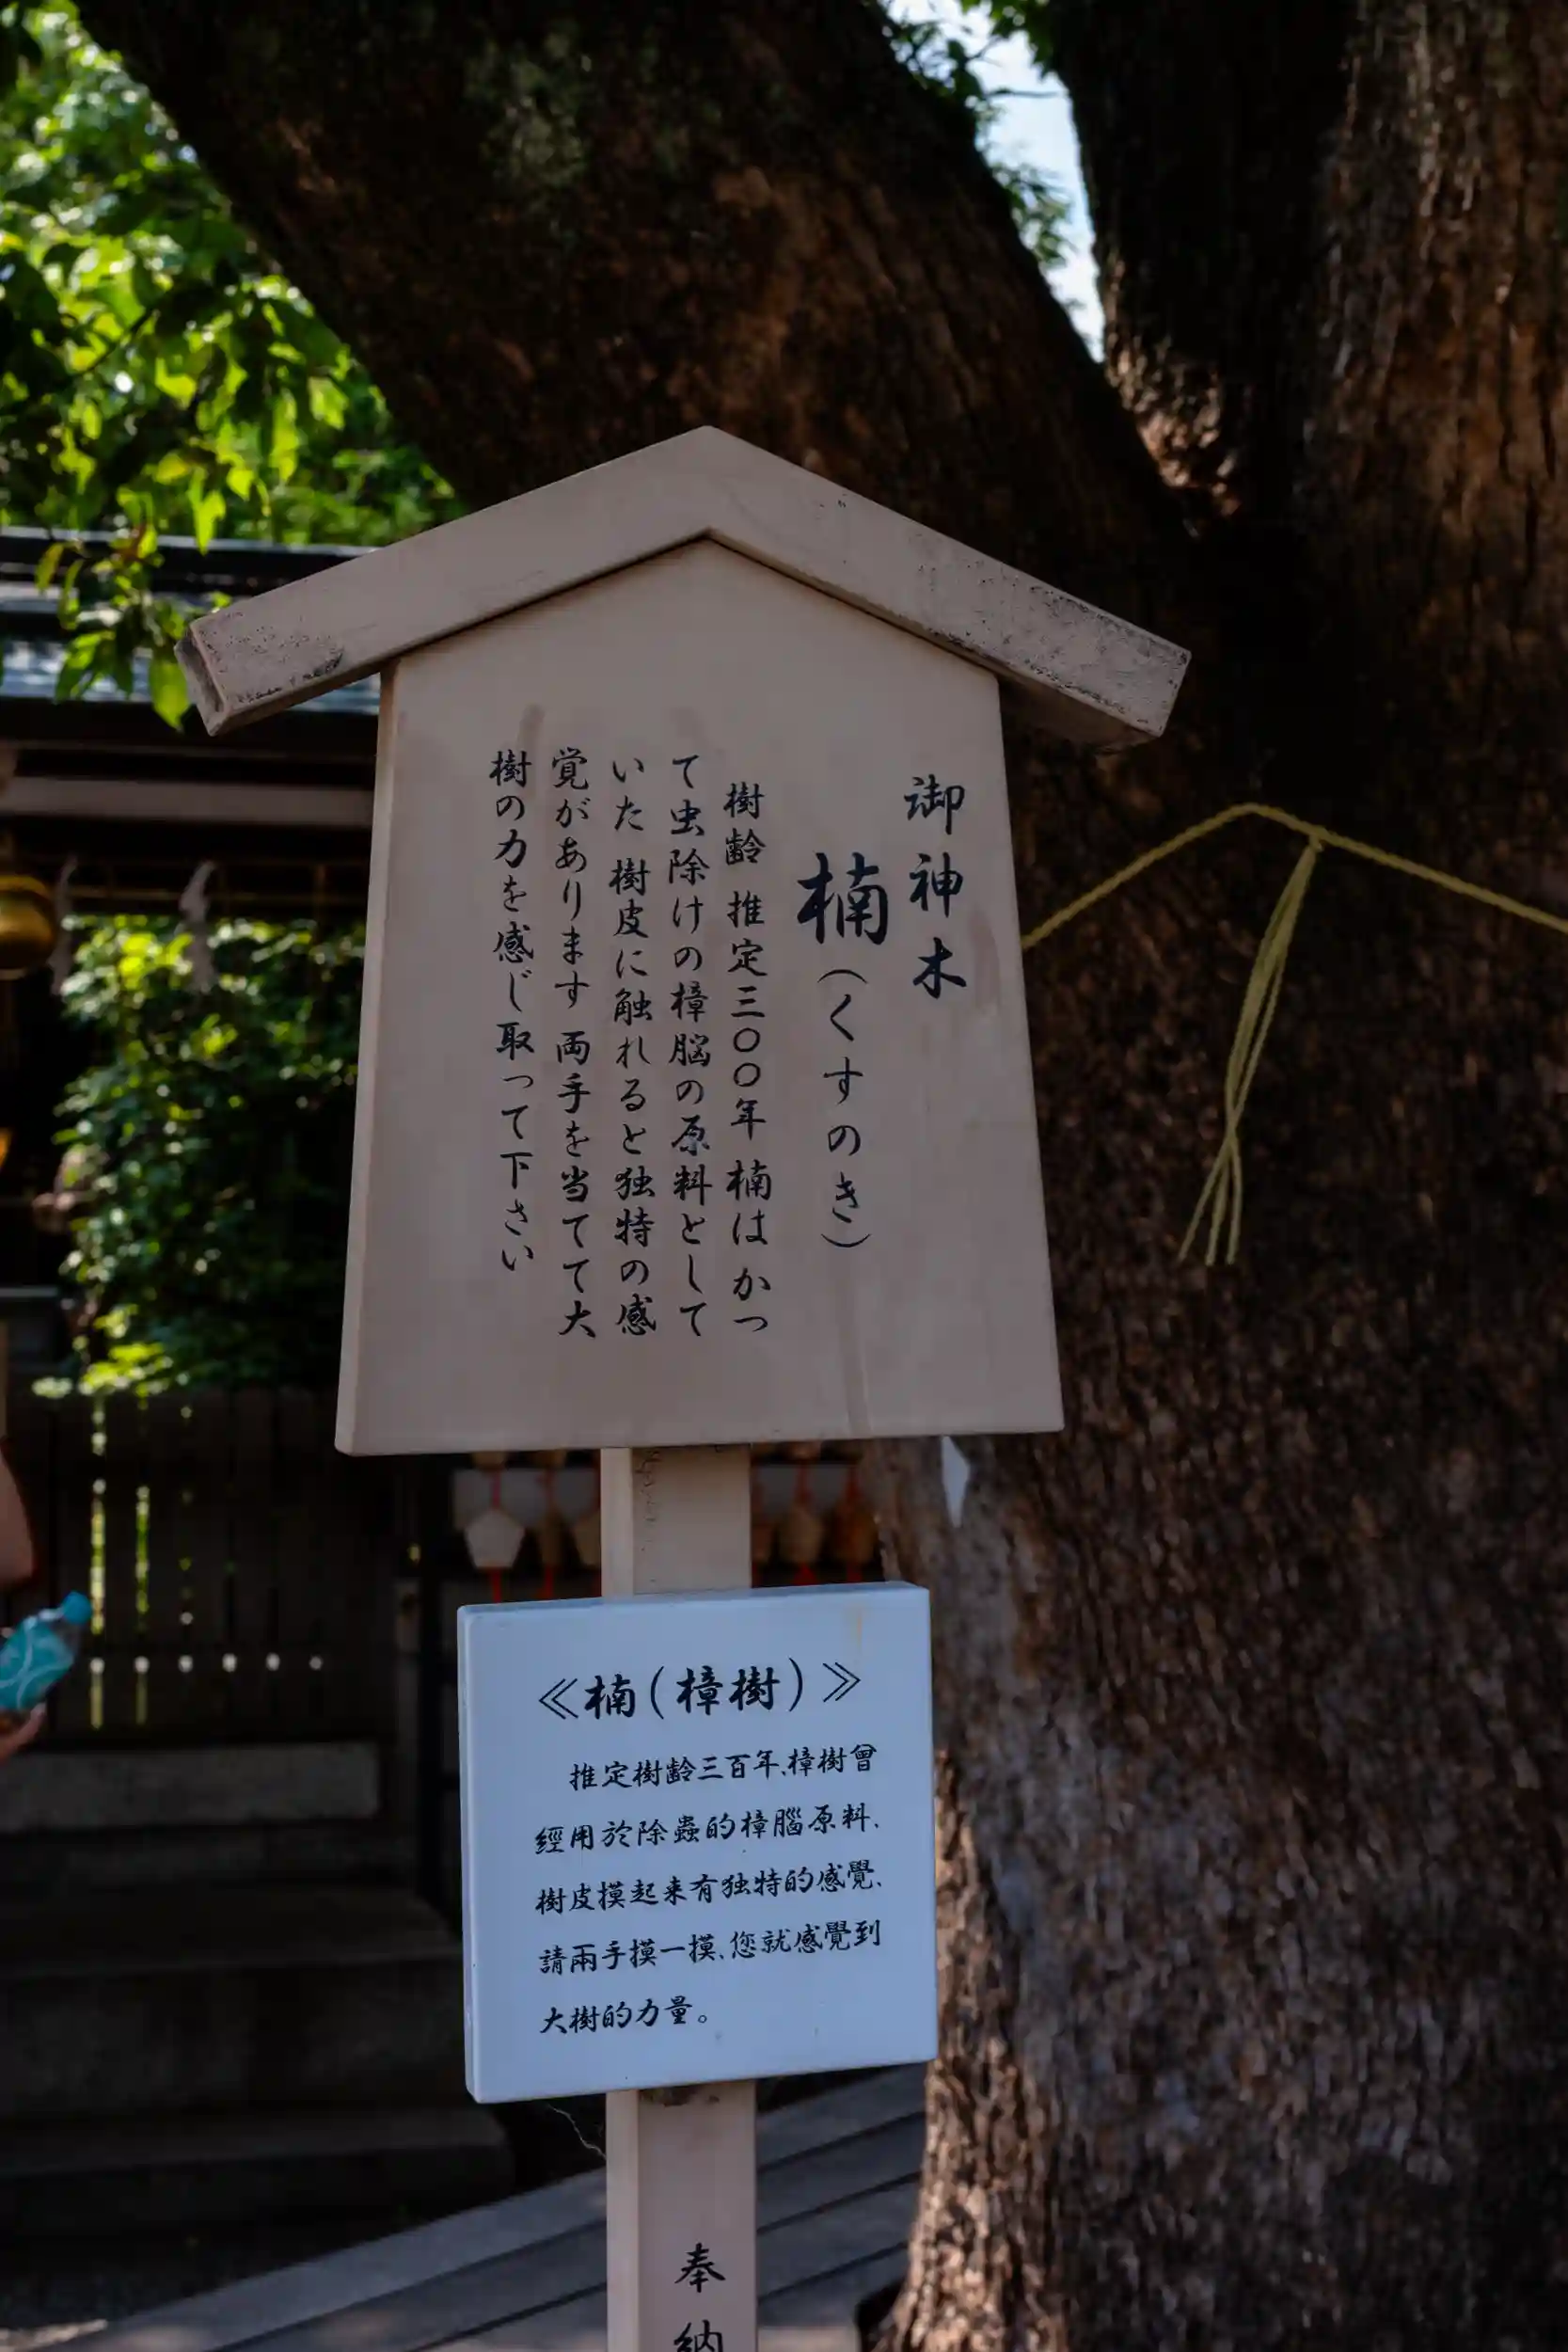 御神木
楠(くすのき)
樹齢 推定三〇〇年 楠はかつ
て虫除けの樟脳の原料として
いた 樹皮に触れると独特の感
覚があります 両手を当てて大
樹の力を感じ取って下さい
≪楠(樟樹)≫
推定樹齡三百年、樟樹曾
經用於除蟲的樟腦原料、
樹皮摸起来有独特的感覺、
請兩手摸一摸、您就感覺到
大樹的力量。
奉納